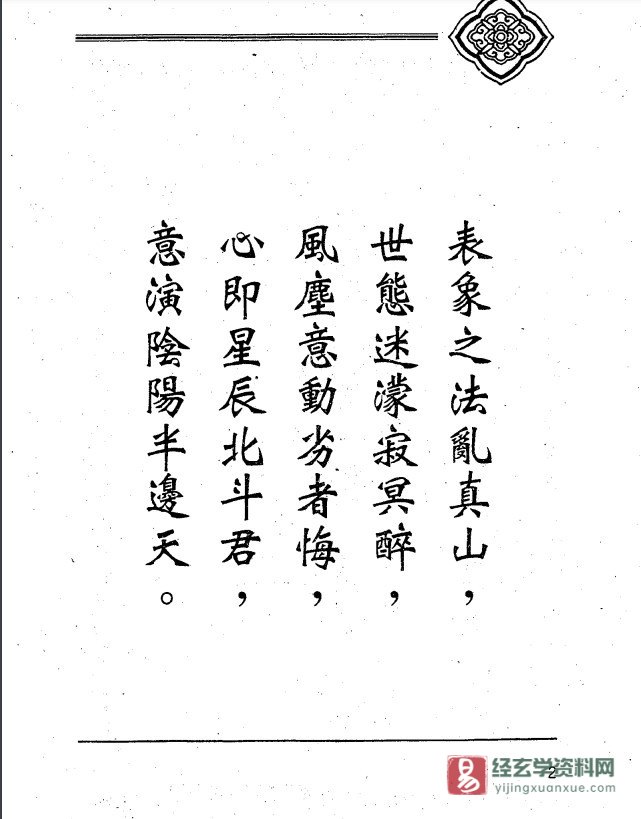 表象之法亂真山，
世態迷濛寂冥醉，
風塵意動劣者悔，
心即星辰北斗君，
意演陰陽半邊天。
2
易
经玄学资料网
yijingxuanxue.com